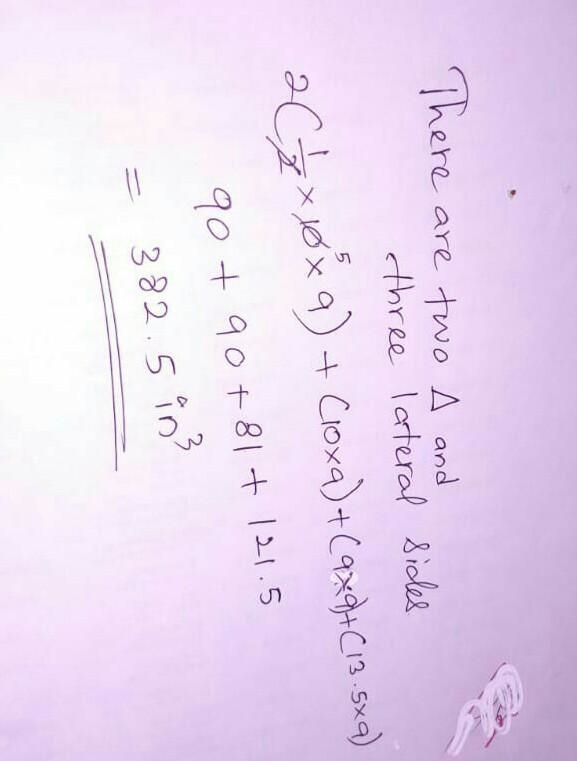 There are two Δ and
three lateral sides
2(1/2 × 10 5 × 9) + (10×9) + (9×9) + (13.5×9)
90 + 90 + 81 + 121.5
= 382.5 in³